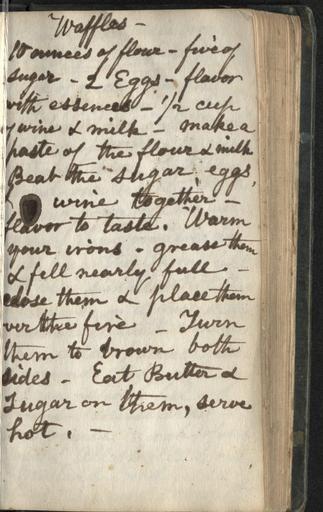 Waffles -
10 ounces of flour - five of
sugar - 2 Eggs - flavor
with essences - 1/2 cup
wine & milk - make a
paste of the flour & milk
Beat the sugar, eggs,
wine together -
flavor to taste. Warm
your irons - grease them
& fill nearly full -
close them & place them
over the fire - Turn
them to brown both
sides - Eat Butter &
Sugar on them, serve
hot. -